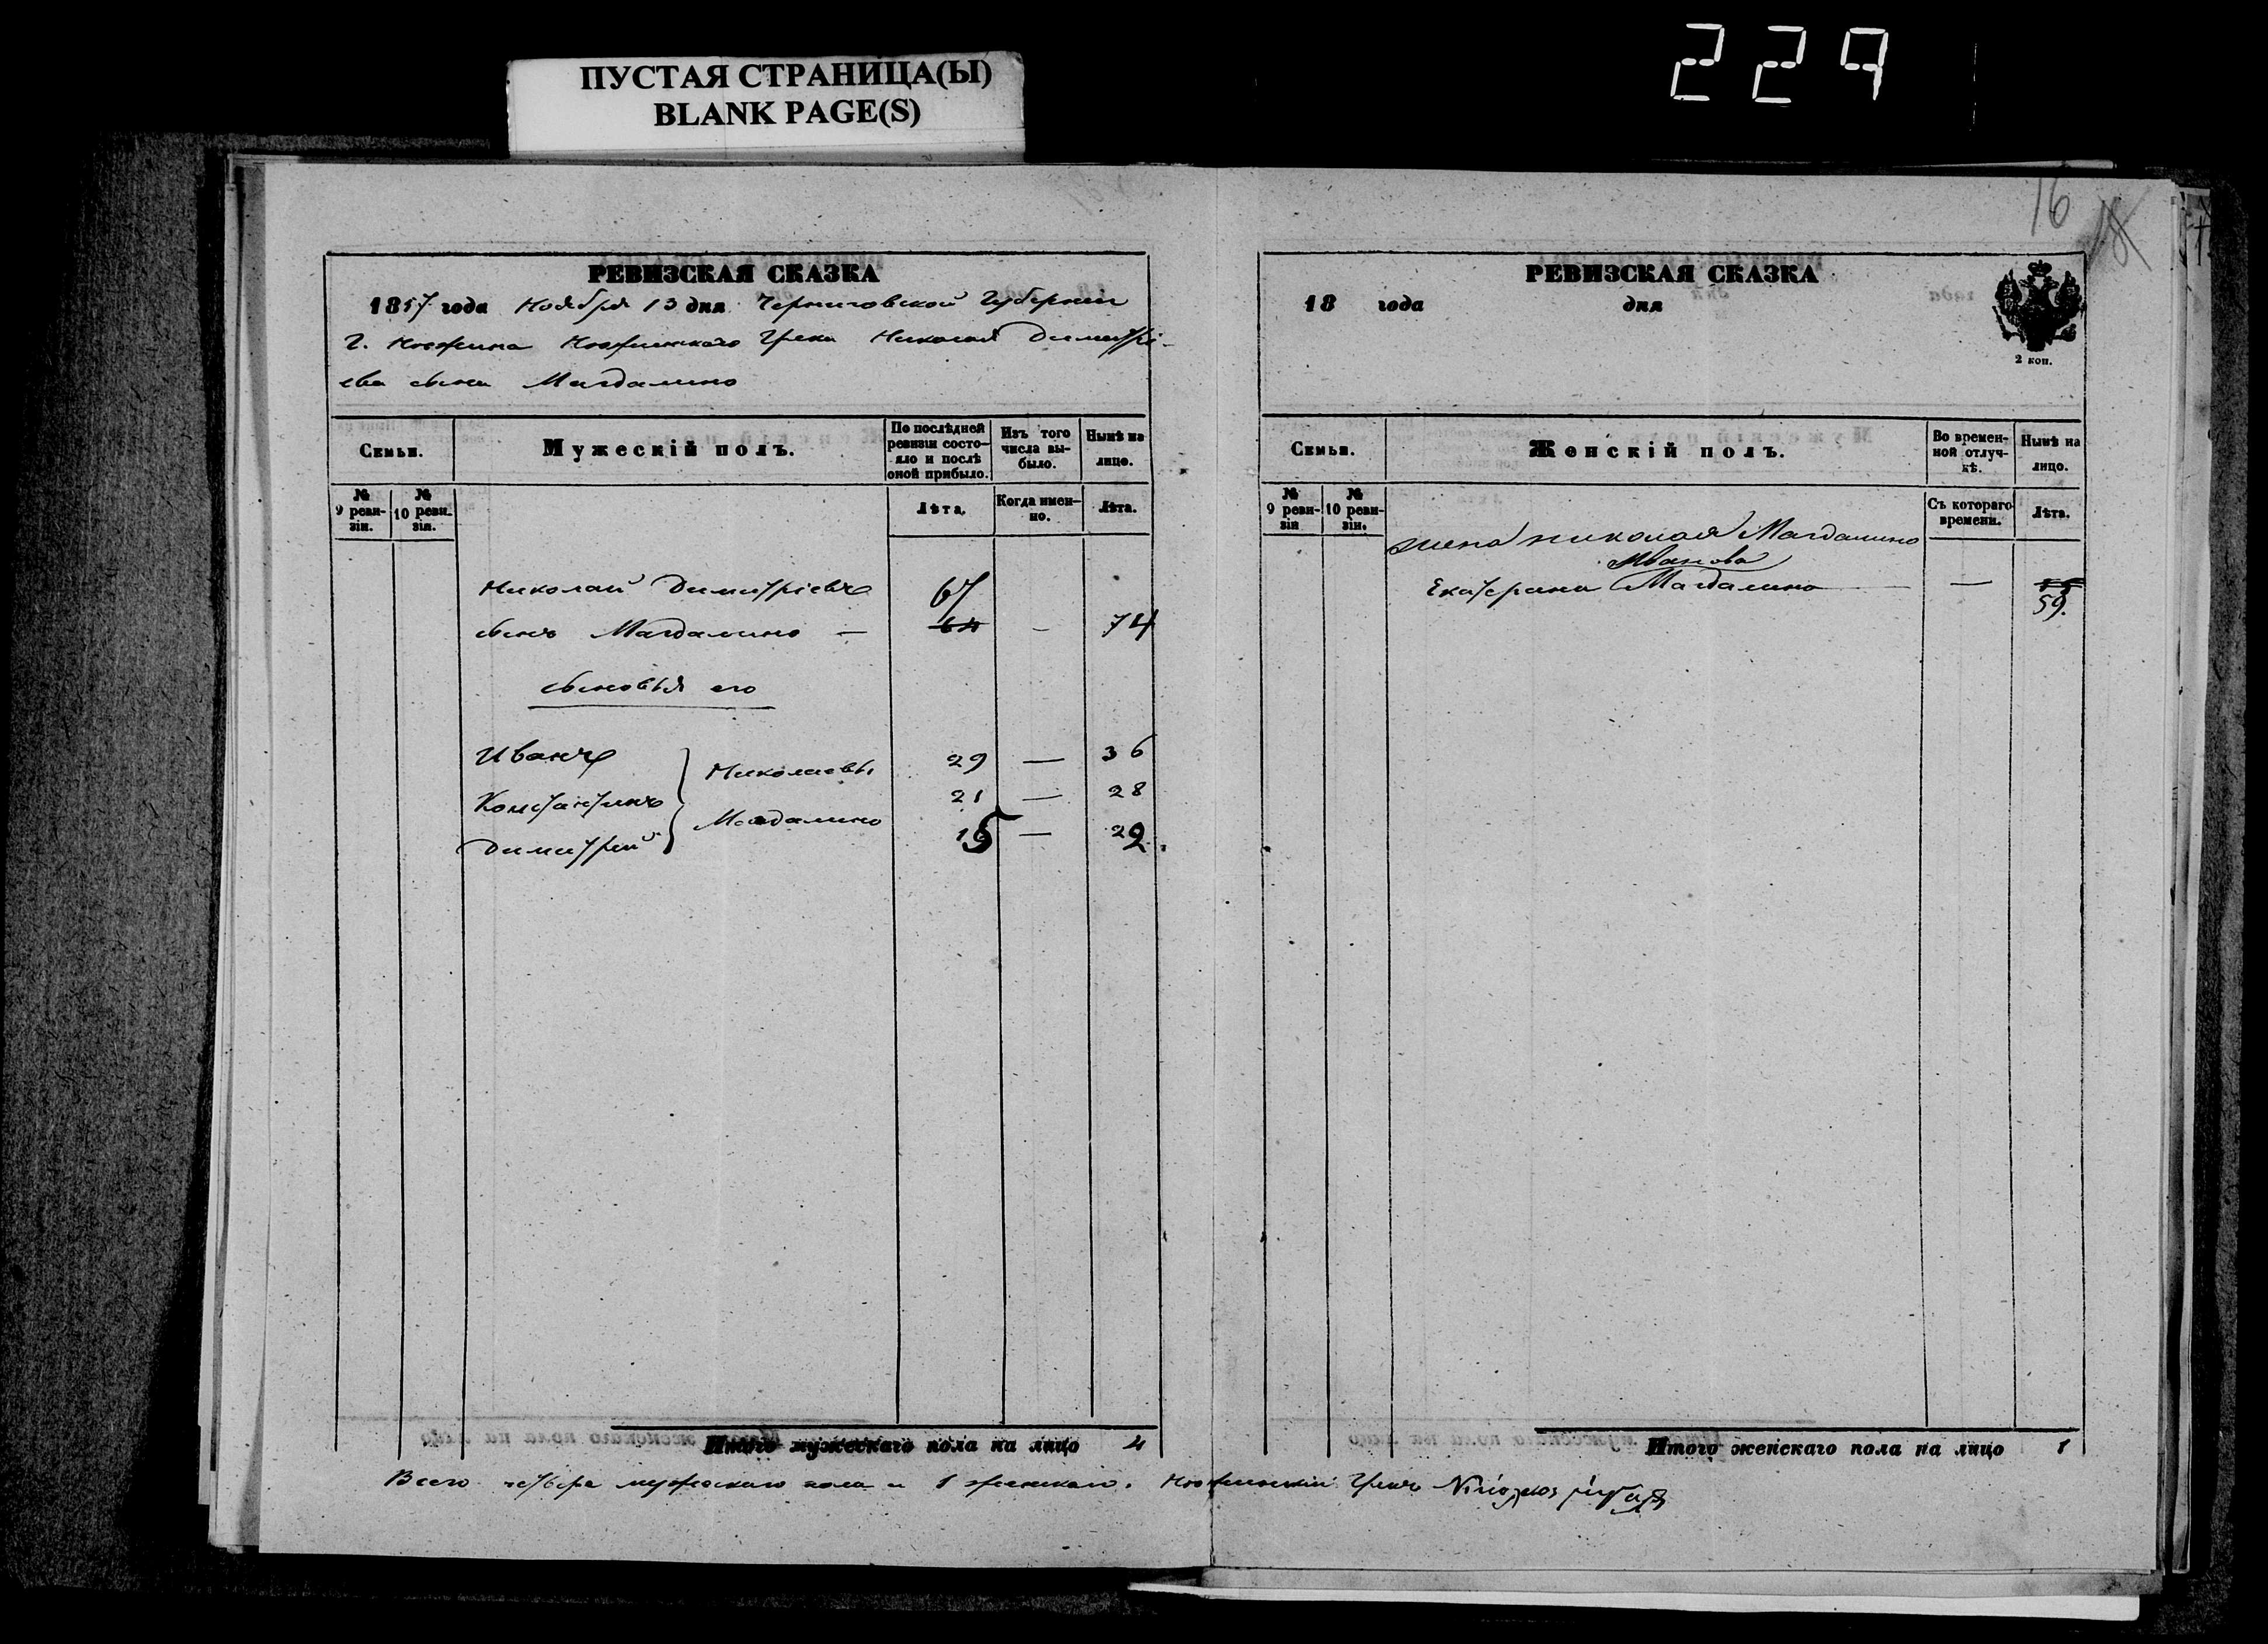 ПУСТАЯ СТРАНИЦА(Ы)
BLANK PAGE(S)
229
16
РЕВИЗСКАЯ СКАЗКА
1857 года Ноября 13 дня Черниговской Губернии
г. Нежина Нежинскаго Грека Николая Димитрі-
ева сына Магдалино
Семьи.
Мужескій полъ.
По послѣдней ревизіи состо-
яло и послѣ
оной прибыло.
Изъ того
числа вы-
было.
Нынѣ на
лицо.
№
9 реви-
зіи.
№
10 реви-
зіи.
Лѣта.
Когда имен-
но.
Лѣта.
Николай Димитріевъ 67
сынъ Магдалино — 64 — 74
сыновья его
Иванъ 29 — 36
Николаевы
Константинъ 21 — 28
Магдалино
Димитрій 15 — 22.
Итого мужескаго пола на лицо 4
РЕВИЗСКАЯ СКАЗКА
18 года дня
2 коп.
Семьи.
Женскій полъ.
Во времен-
ной отлуч-
кѣ.
Нынѣ на
лицо.
№
9 реви-
зіи
№
10 реви-
зіи.
Съ котораго
времени.
Лѣта.
жена николая Магдалино
Иванова
Екатерина Магдалино —
59.
Итого женскаго пола на лицо 1
Всего четыре мужескаго пола и 1 женскаго. Нежинскій Грекъ